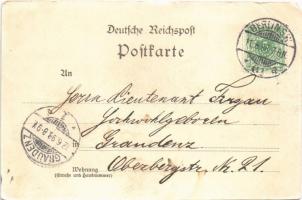 Deutsche Reichspost
Postkarte
An
Herrn Lieutenant
Hochwohlgeboren
in Graudenz
Wohnung
(Strasse und Hausnummer)
Oberbergstr. N. 21.
GRAUDENZ
BERLIN